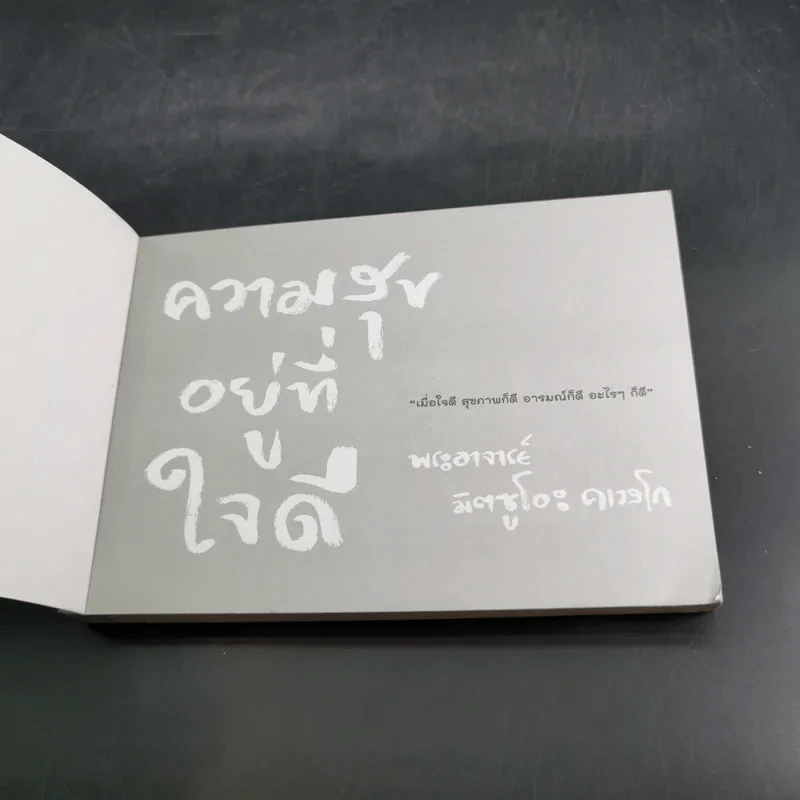 ความสุข
อยู่ที่
ใจดี
“เมื่อใจดี สุขภาพก็ดี อารมณ์ก็ดี อะไรๆ ก็ดี”
พระอาจารย์
มิตซูโอะ คเวสโก